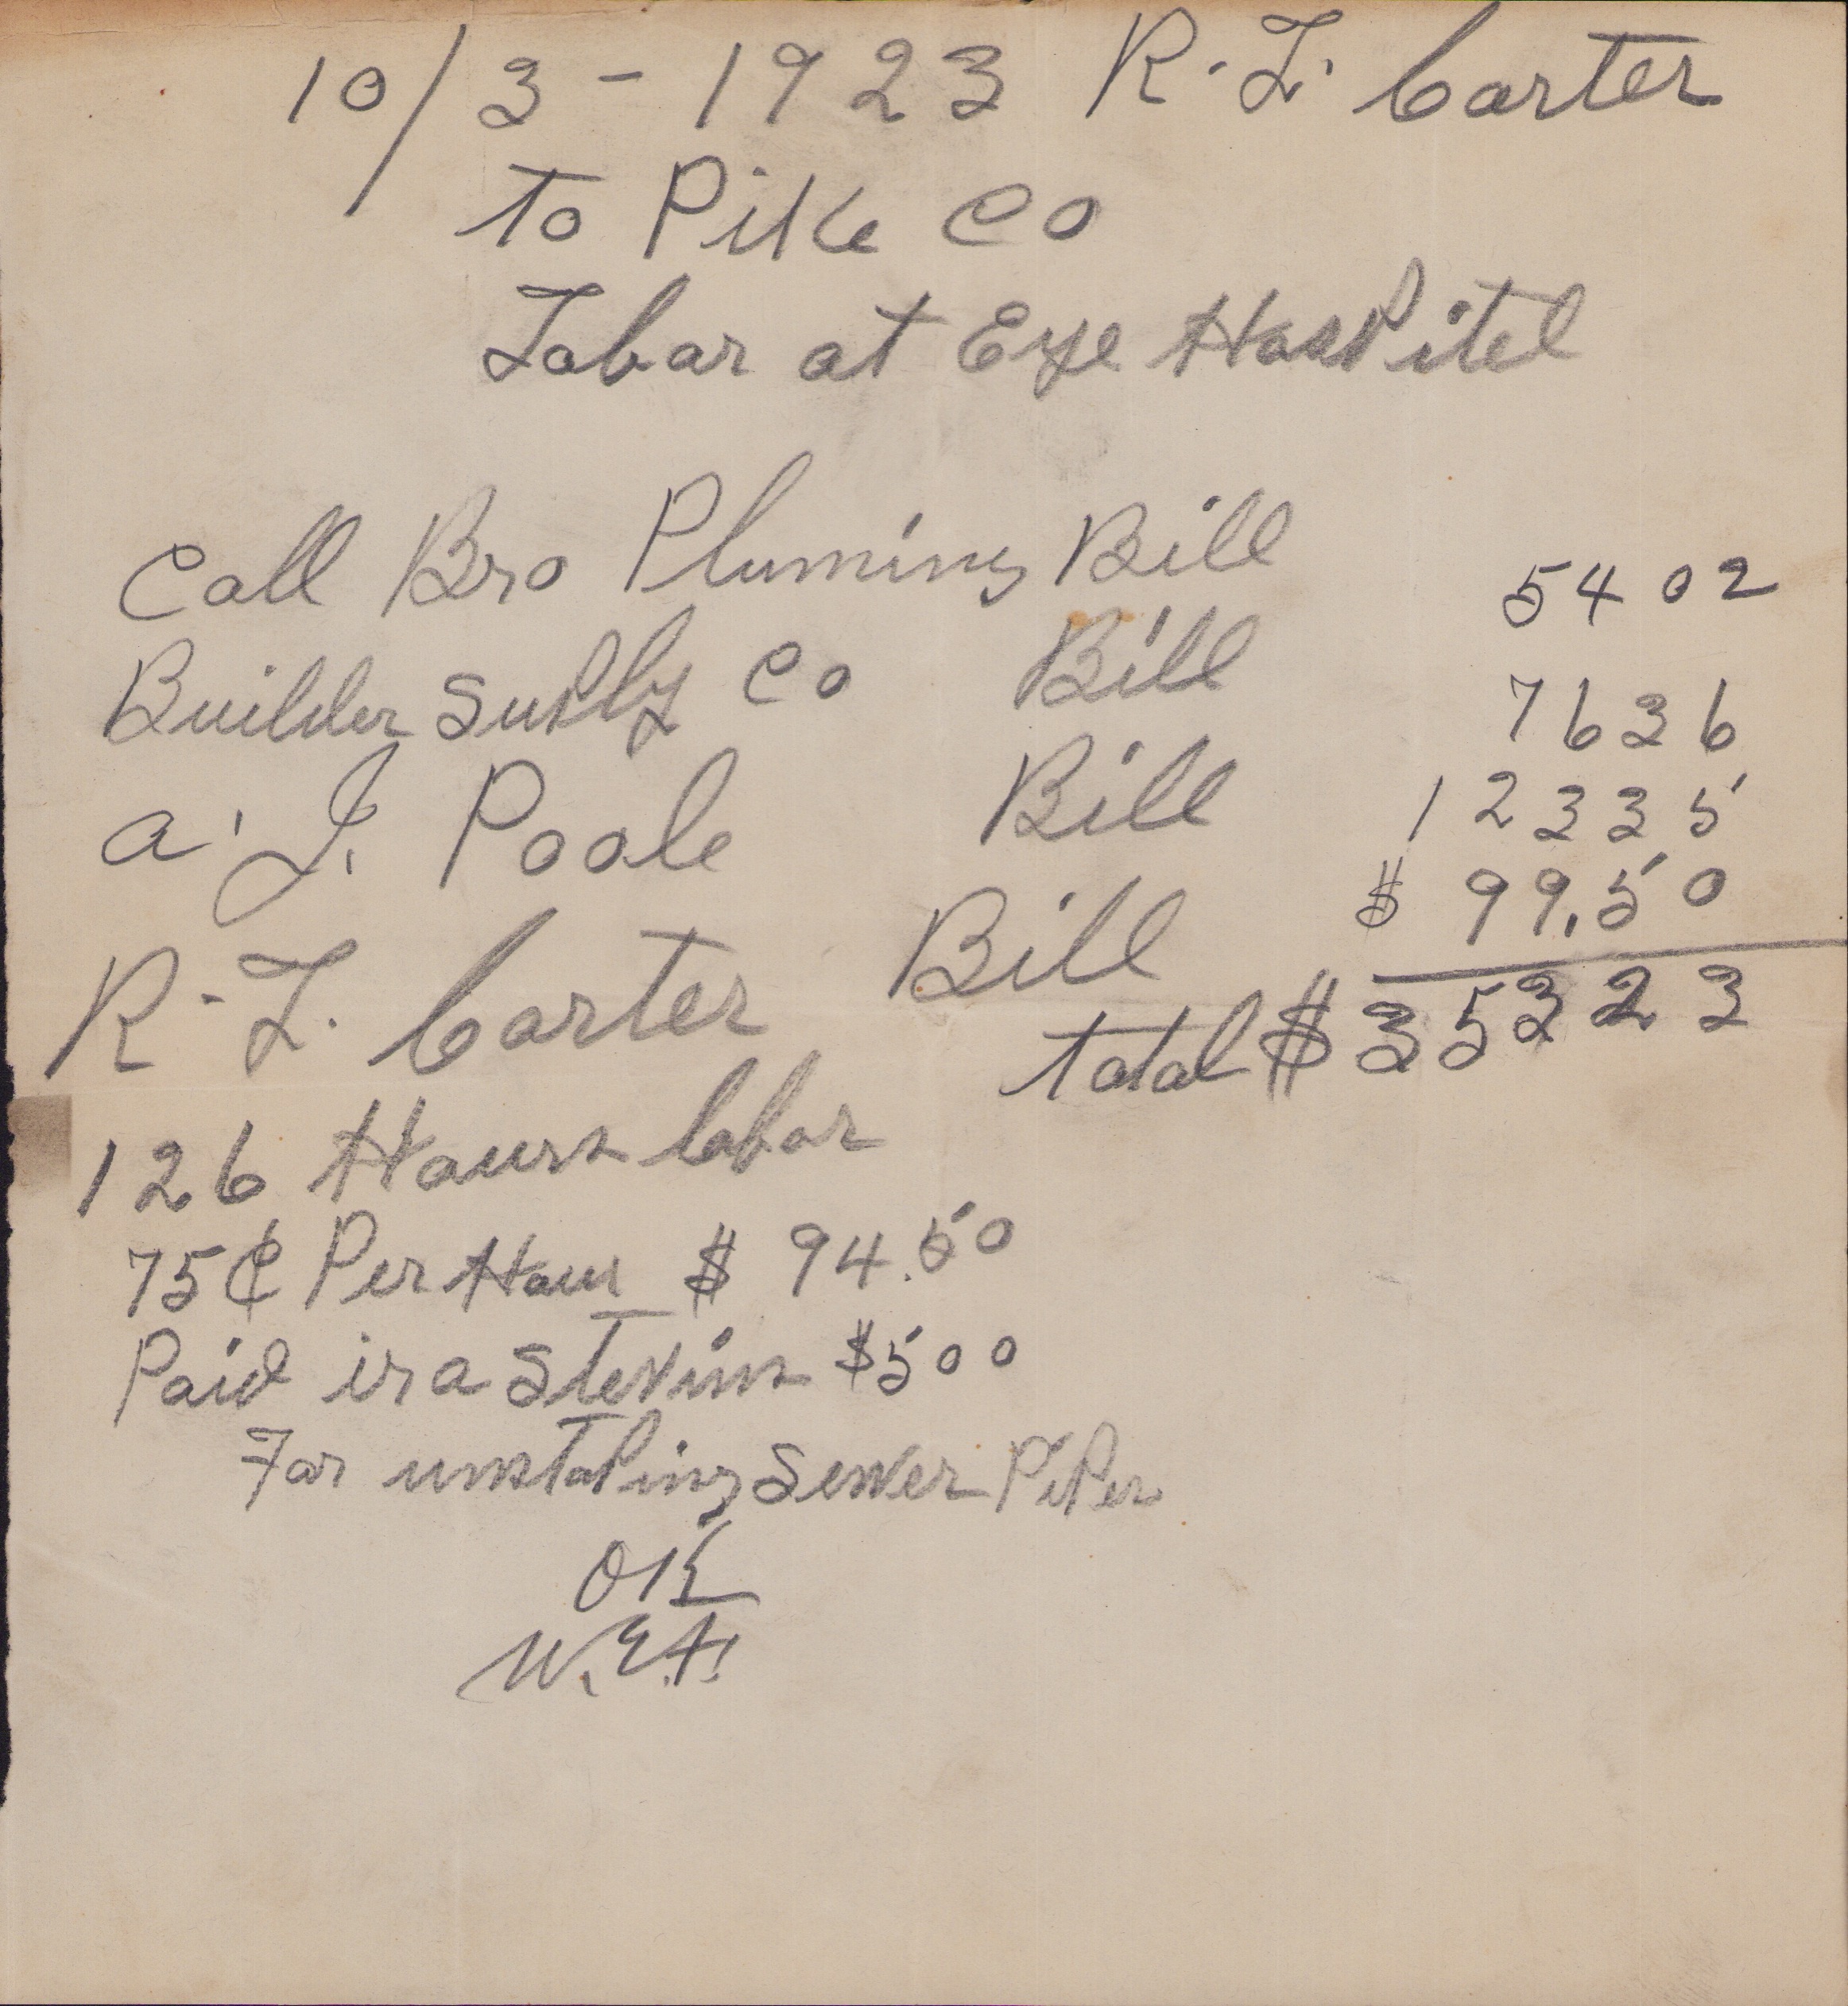 10/3-1923 R.L. Carter
To Pike Co
Labor at Eye Hosspitel
Call Bro Pluming Bill 54 02
Builder Suply Co Bill 76 36
A. J. Poole Bill 123 35
R. L. Carter Bill $ 99.50
total $ 353 23
126 Hours labor
75¢ Per Hour $ 94.50
Paid ira Stevins $5 00
For unstoping Sewer Pipes
OK
W.E.H.